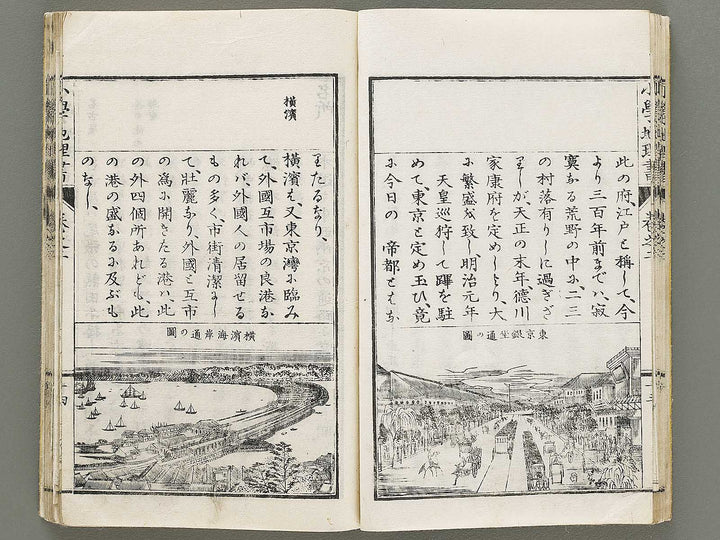 此の府江戸と稱して、今
より三百年前までハ、寂
寞なる荒野の中に、二三
の村落有りしに過ぎざ
りしが、天正の末年、德川
家康府を定めしより、大
に繁盛を致し、明治元年
天皇巡狩して蹕を駐
めて、東京と定め玉ひ、竟
に今日の 帝都とはな
東京銀坐通の圖
橫濱
りたるなり、
橫濱は、又東京灣に臨み
て、外國互市場の良港な
れバ、外國人の居留せる
もの多く、市街清潔にし
て、壯麗なり、外國と互市
の爲に開きたる港ハ、此
の外四個所あれども、此
の港の盛なるに及ぶも
のなし、
橫濱海岸通の圖
小學地理書